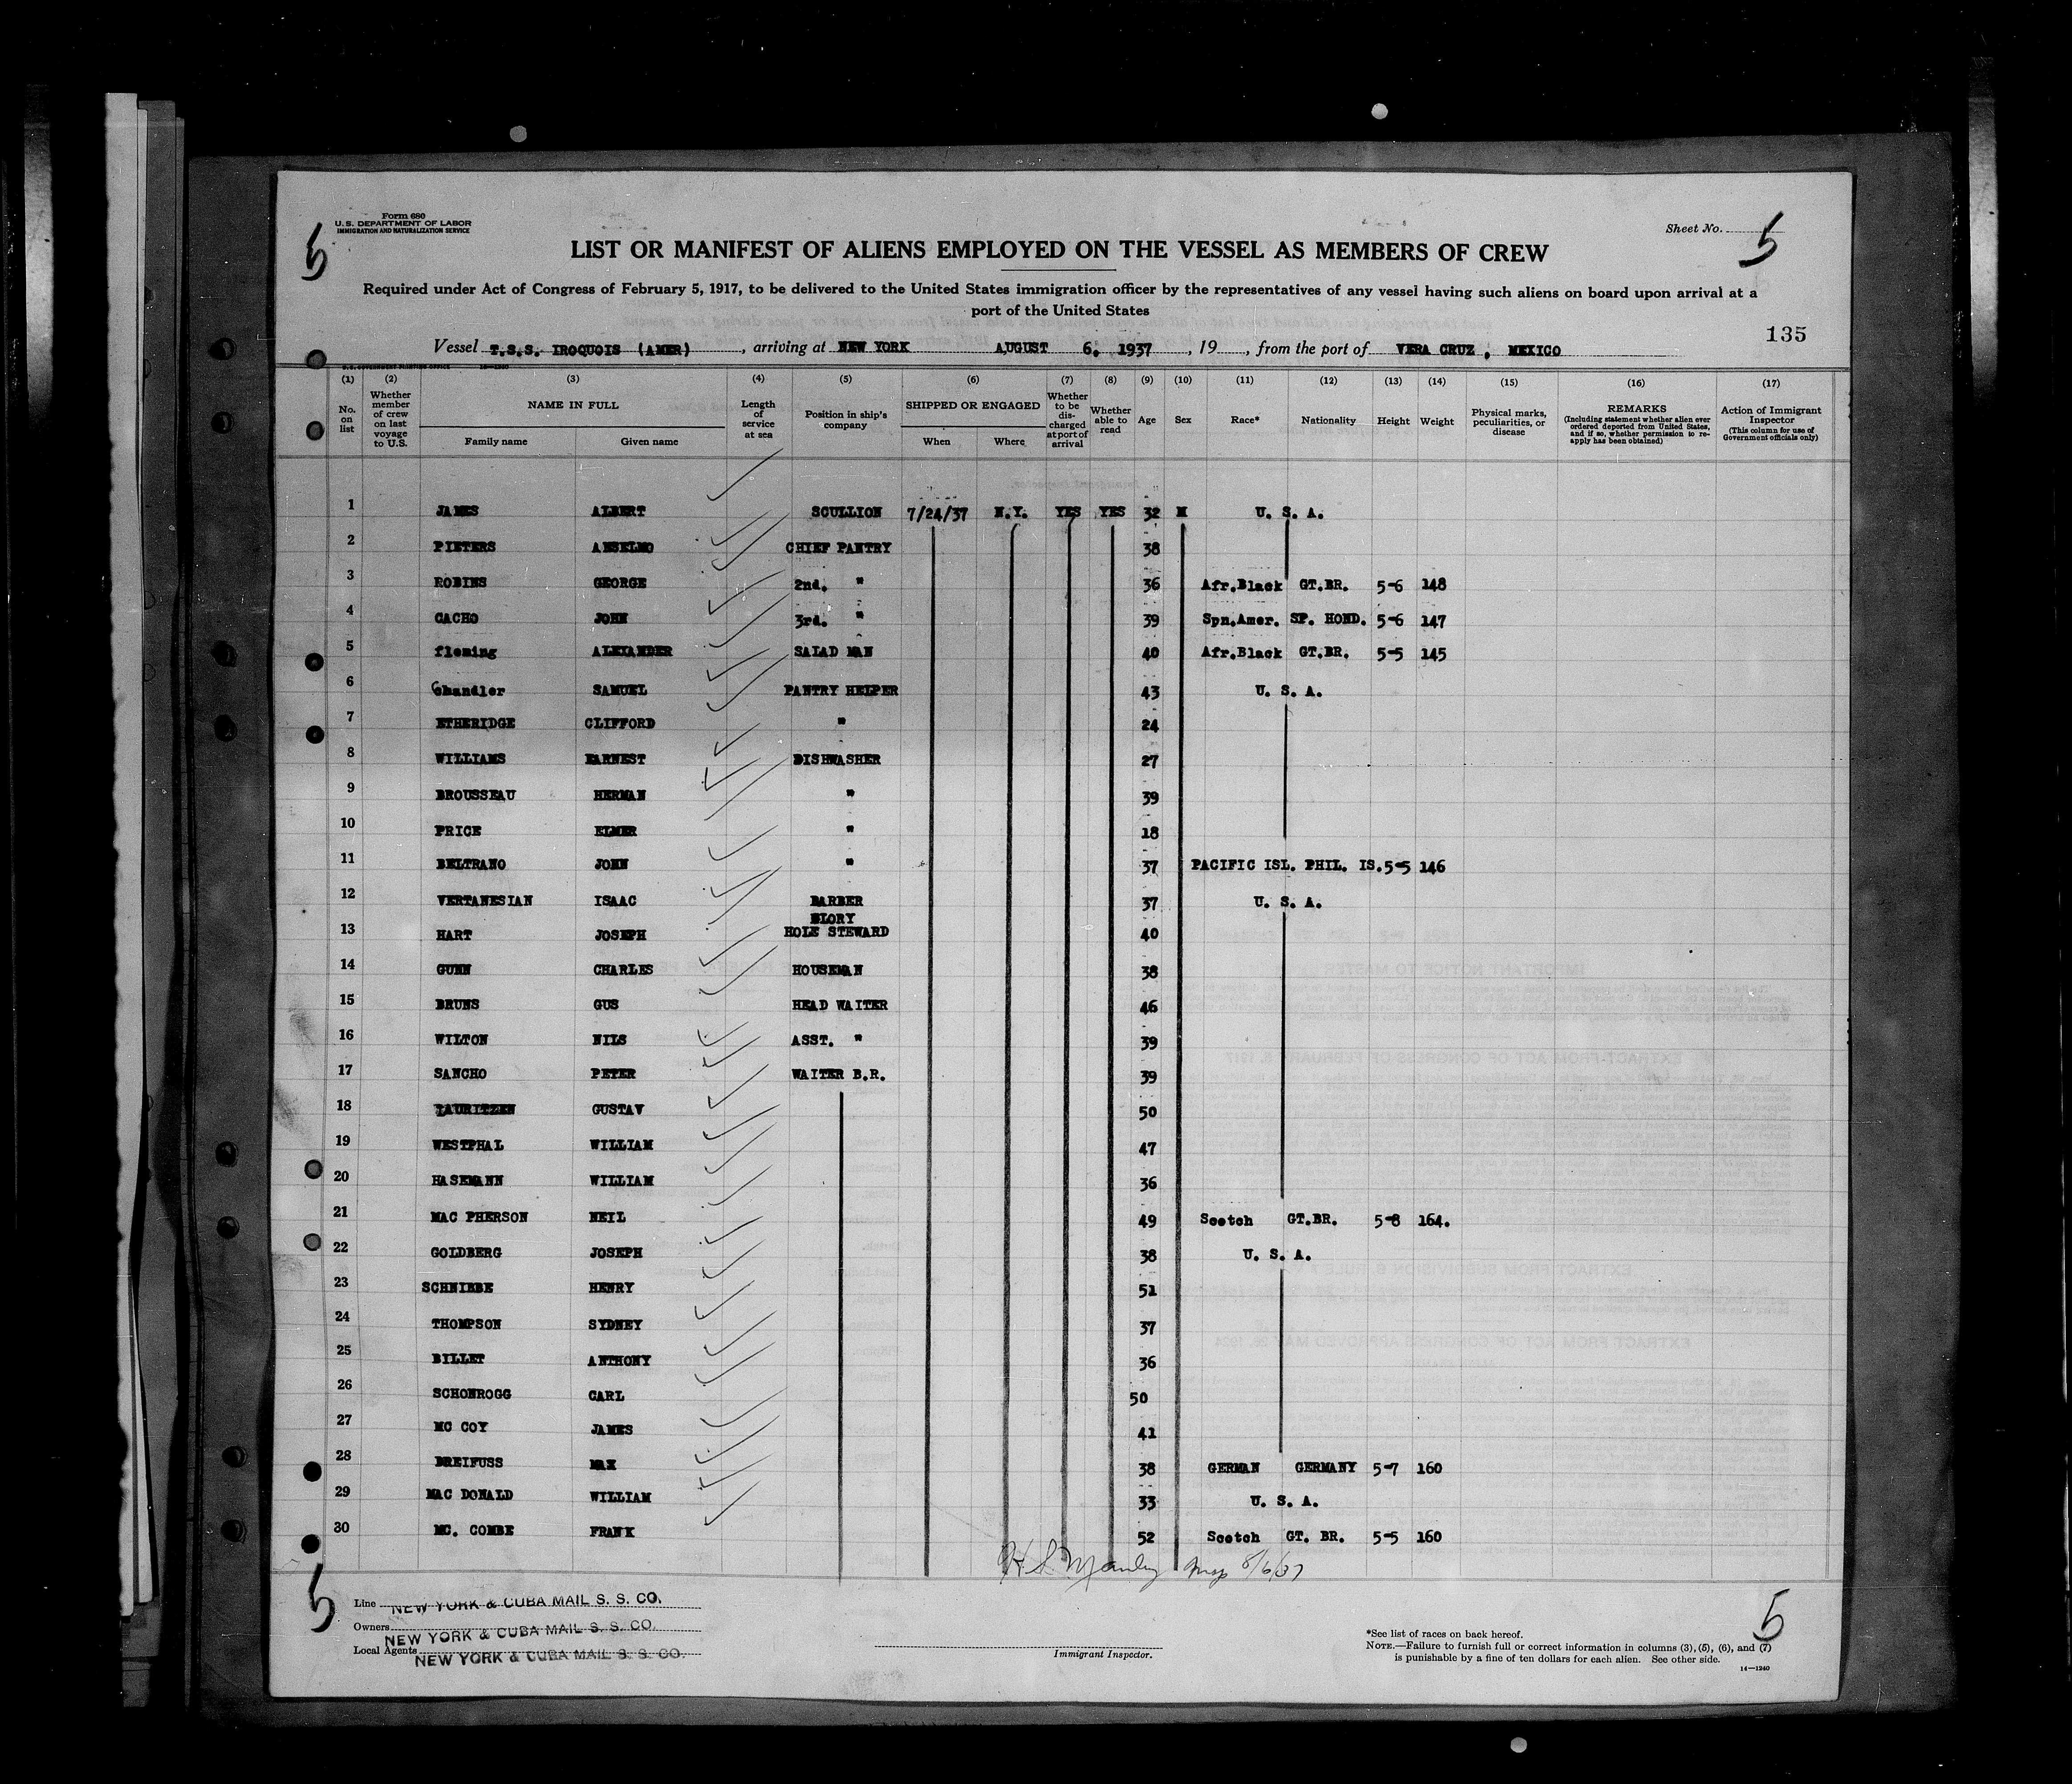 Form 680
U. S. DEPARTMENT OF LABOR
IMMIGRATION AND NATURALIZATION SERVICE
5
Sheet No. 5
LIST OR MANIFEST OF ALIENS EMPLOYED ON THE VESSEL AS MEMBERS OF CREW
Required under Act of Congress of February 5, 1917, to be delivered to the United States immigration officer by the representatives of any vessel having such aliens on board upon arrival at a
port of the United States
135
Vessel T.S.S. IROQUOIS (AMER), arriving at NEW YORK AUGUST 6, 1937, 19, from the port of VERA CRUZ, MEXICO
U.S. GOVERNMENT PRINTING OFFICE 14—1240
(1) (2) (3) (4) (5) (6) (7) (8) (9) (10) (11) (12) (13) (14) (15) (16) (17)
No. on list
Whether member of crew on last voyage to U.S.
NAME IN FULL
Family name
Given name
Length of service at sea
Position in ship's company
SHIPPED OR ENGAGED
When
Where
Whether to be discharged at port of arrival
Whether able to read
Age
Sex
Race*
Nationality
Height
Weight
Physical marks, peculiarities, or disease
REMARKS
(Including statement whether alien ever ordered deported from United States, and if so, whether permission to reapply has been obtained)
Action of Immigrant Inspector
(This column for use of Government officials only)
1 JAMES ALBERT SCULLION 7/24/37 N.Y. YES YES 32 M U. S. A.
2 PIETERS ANSELMO CHIEF PANTRY 38
3 ROBINS GEORGE 2nd. " 36 Afr.Black GT.BR. 5-6 148
4 CACHO JOHN 3rd. " 39 Spn.Amer. SP. HOND. 5-6 147
5 fleming ALEXANDER SALAD MAN 40 Afr.Black GT.BR. 5-5 145
6 Chandler SAMUEL PANTRY HELPER 43 U. S. A.
7 ETHERIDGE CLIFFORD " 24
8 WILLIAMS EARNEST DISHWASHER 27
9 BROUSSEAU HERMAN " 39
10 PRICE ELMER " 18
11 BELTRANO JOHN " 37 PACIFIC ISL. PHIL. IS. 5-5 146
12 VERTANESIAN ISAAC BARBER 37 U. S. A.
13 HART JOSEPH GLORY HOLE STEWARD 40
14 GUNN CHARLES HOUSEMAN 38
15 BRUNS GUS HEAD WAITER 46
16 WILTON NILS ASST. " 39
17 SANCHO PETER WAITER B.R. 39
18 LAURITZEN GUSTAV 50
19 WESTPHAL WILLIAM 47
20 HASEMANN WILLIAM 36
21 MAC PHERSON NEIL 49 Scotch GT.BR. 5-8 164.
22 GOLDBERG JOSEPH 38 U. S. A.
23 SCHNIEBE HENRY 51
24 THOMPSON SYDNEY 37
25 BILLET ANTHONY 36
26 SCHONROGG CARL 50
27 MC COY JAMES 41
28 DREIFUSS MAX 38 GERMAN GERMANY 5-7 160
29 MAC DONALD WILLIAM 33 U. S. A.
30 MC. COMBE FRANK 52 Scotch GT. BR. 5-5 160
H S Manley Insp 8/6/37
5
Line NEW YORK & CUBA MAIL S. S. CO.
Owners NEW YORK & CUBA MAIL S. S. CO.
Local Agents NEW YORK & CUBA MAIL S. S. CO.
Immigrant Inspector.
5
*See list of races on back hereof.
NOTE.—Failure to furnish full or correct information in columns (3), (5), (6), and (7)
is punishable by a fine of ten dollars for each alien. See other side.
14—1240